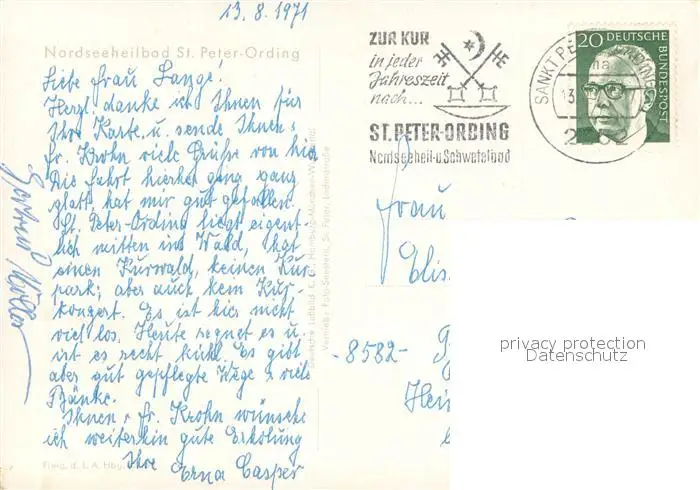 13.8.1971
Nordseeheilbad St. Peter-Ording
Liebe Frau Lange!
Herzl. danke ich Ihnen für
Ihre Karte u. sende Ihnen u.
fr. Krohn viele Grüße von hier
Die Fahrt hierher ging ganz
glatt hat mir gut gefallen.
St. Peter-Ording liegt eigent-
lich mitten im Wald, hat
einen Kurwald, keinen Kur-
park; aber auch kein Kur-
konzert. Es ist hier nicht
viel los. Heute regnet es u.
ist es recht kühl. Es gibt
aber gut gepflegte Wege u. viele
Bänke.
Ihnen u. fr. Krohn wünsche
ich weiterhin gute Erholung
Ihre
Erna Casper
Gertrud Müller
Freig. d. L. A. Hbg.
ZUR KUR
in jeder
Jahreszeit
nach...
ST. PETER-ORDING
Nordseeheil-u.Schwefelbad
SANKT PETER-ORDING
13.
2252
20 DEUTSCHE
BUNDESPOST
Frau
Elis
-8582-
Hei
privacy protection
Datenschutz